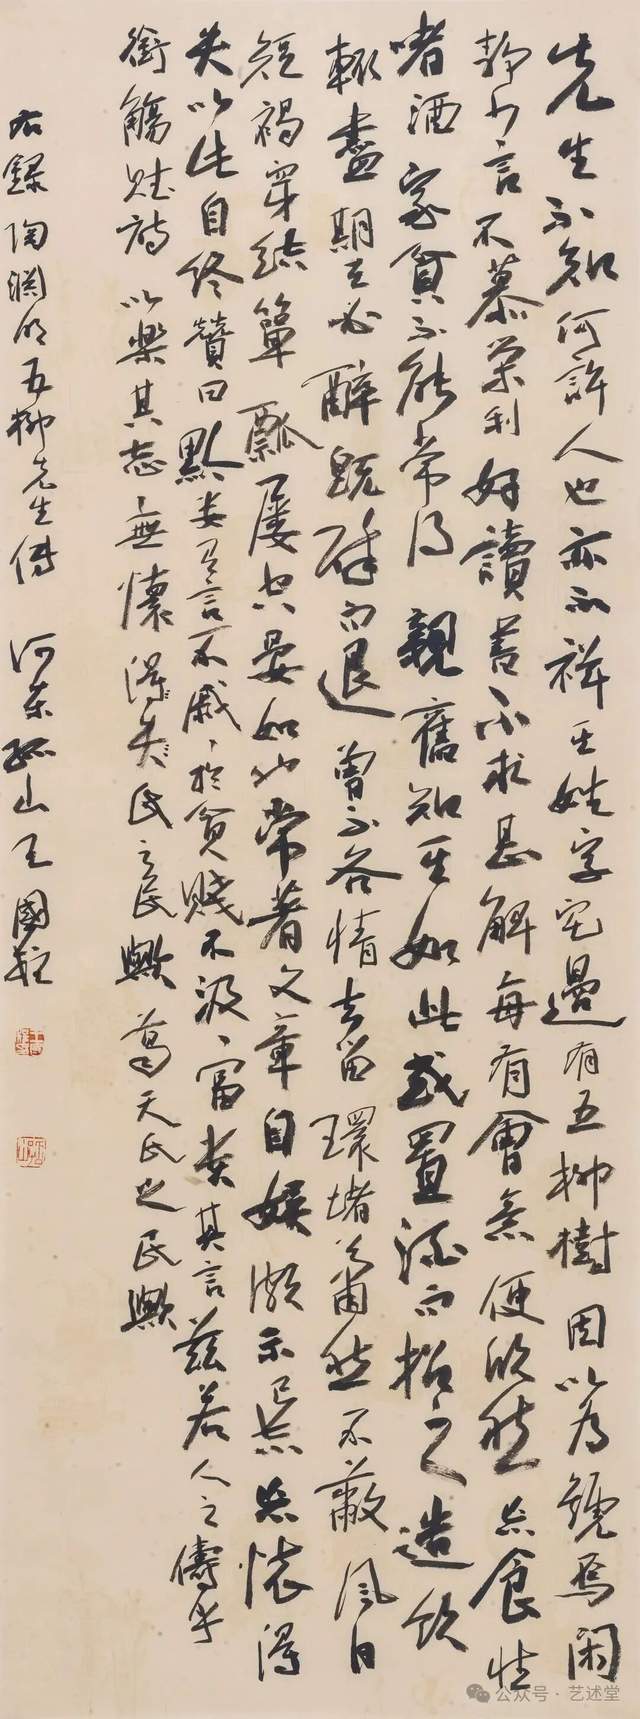 先生不知何許人也亦不詳其姓字宅邊有五柳樹因以為號焉閑
靜少言不慕榮利好讀書不求甚解每有會意便欣然忘食性
嗜酒家貧不能常得親舊知其如此或置酒而招之造飲
輒盡期在必醉既醉而退曾不吝情去留環堵蕭然不蔽風日
短褐穿結簞瓢屢空晏如也常著文章自娛頗示己志忘懷得
失以此自終贊曰黔婁有言不戚々於貧賤不汲々富貴其言茲若人之儔乎
銜觴賦詩以樂其志々無懷得失氏之民歟葛天氏之民歟
右錄陶淵明五柳先生傳 河東孤山王國
公众号·艺述堂